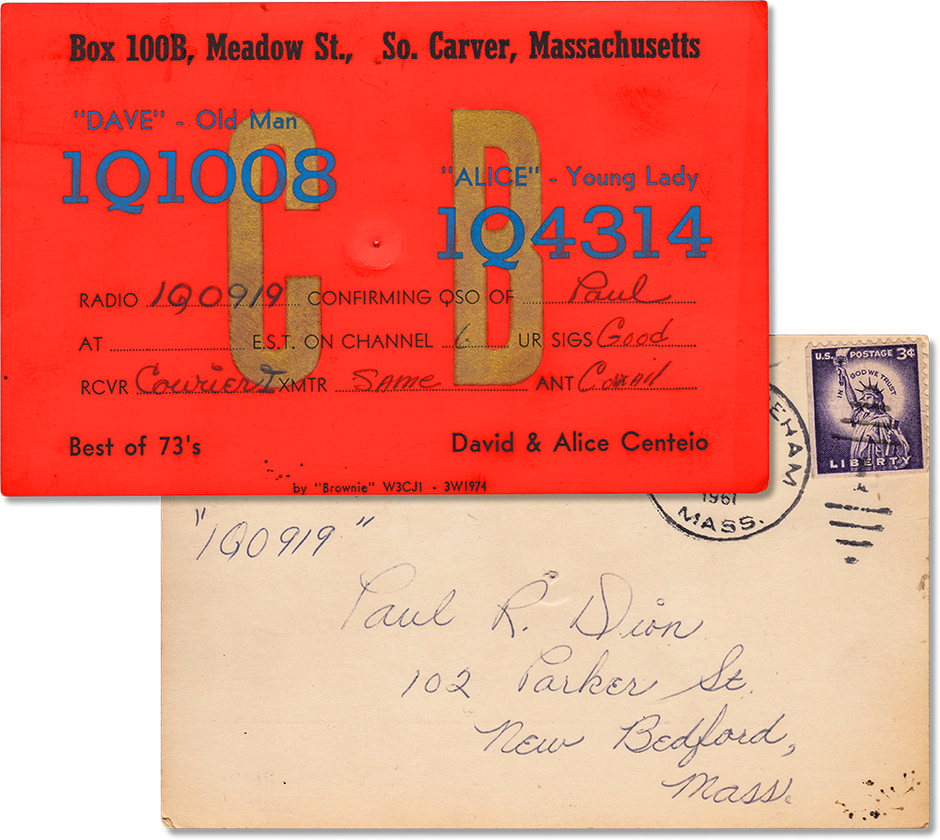 Box 100B, Meadow St., So. Carver, Massachusetts
C B
"DAVE" - Old Man
1Q1008
"ALICE" - Young Lady
1Q4314
RADIO 1Q0919 CONFIRMING QSO OF Paul
AT E.S.T. ON CHANNEL 6 UR SIGS Good
RCVR Courier I XMTR SAME ANT
Best of 73's David & Alice Centeio
by "Brownie" W3CJ1 - 3W1974
U.S. POSTAGE 3¢
IN GOD WE TRUST
LIBERTY
EHAM
1961
MASS.
"1Q0919"
Paul R. Dion
102 Parker St.
New Bedford,
Mass.